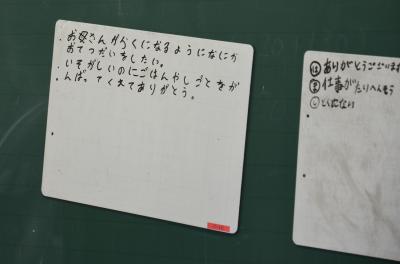 ・お母さんがらくになるようになにか
おてつだいをしたい。
・いそがしいのにごはんやしごとをが
んばってくれてありがとう。
は ありがとうございます
ま 仕事がたいへんそう